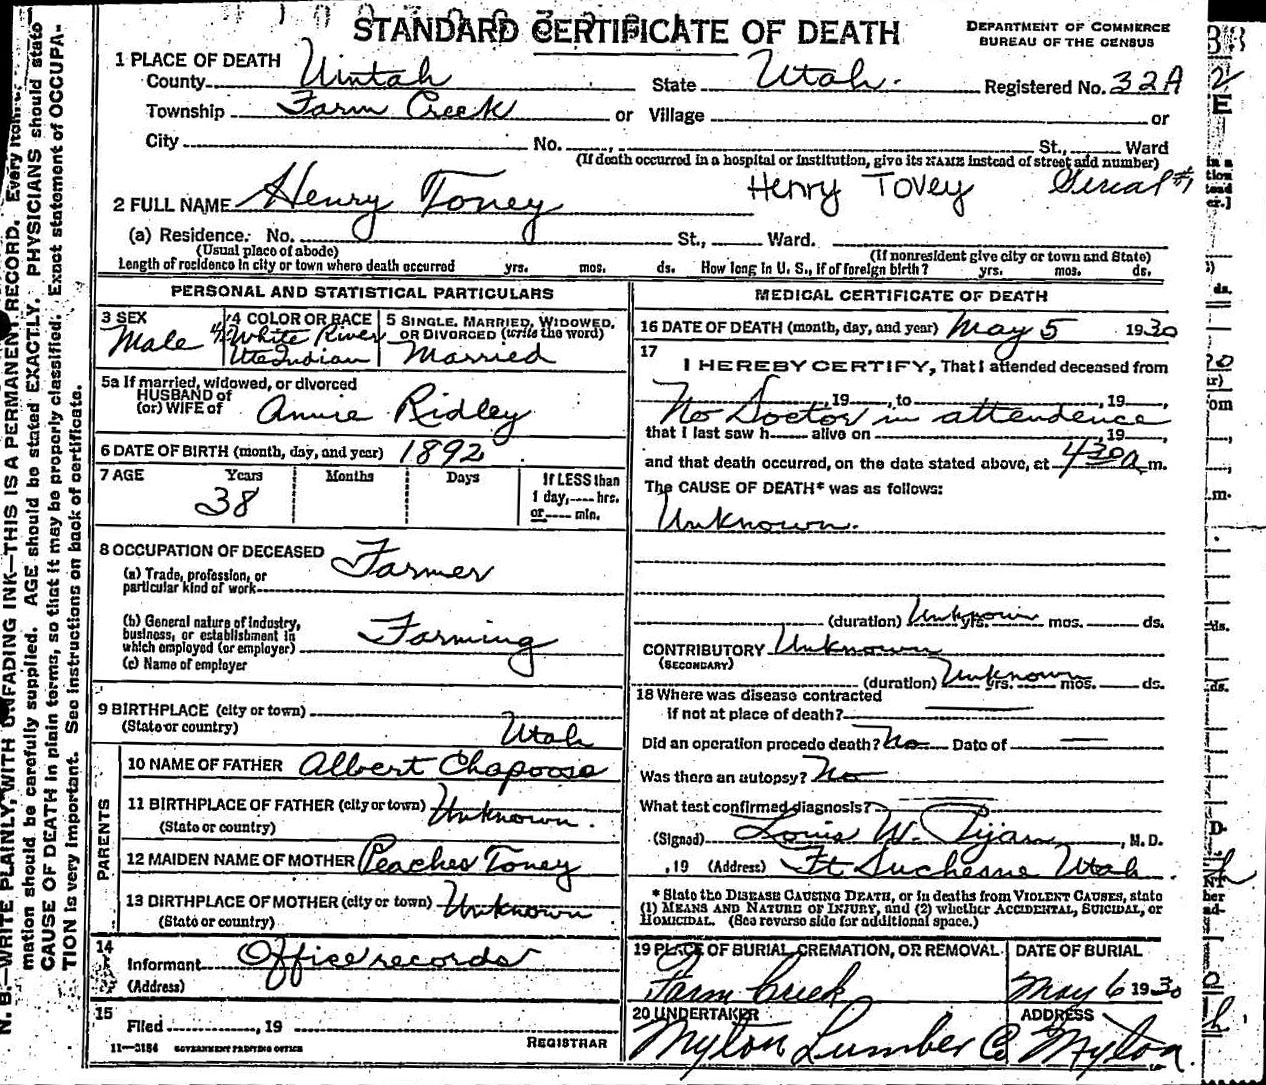 STANDARD CERTIFICATE OF DEATH
DEPARTMENT OF COMMERCE
BUREAU OF THE CENSUS
1 PLACE OF DEATH
County Uintah State Utah. Registered No. 32A
Township Farm Creek or Village or
City No. St., Ward
(If death occurred in a hospital or institution, give its NAME instead of street and number)
Henry Tovey Serial #1
2 FULL NAME Henry Toney
(a) Residence. No. St., Ward.
(Usual place of abode) (If nonresident give city or town and State)
Length of residence in city or town where death occurred yrs. mos. ds. How long in U. S., if of foreign birth? yrs. mos. ds.
PERSONAL AND STATISTICAL PARTICULARS
3 SEX 4 COLOR OR RACE 5 SINGLE, MARRIED, WIDOWED, OR DIVORCED (write the word)
Male 4/4 White River Ute Indian Married
5a If married, widowed, or divorced
HUSBAND of
(or) WIFE of Annie Ridley
6 DATE OF BIRTH (month, day, and year) 1892
7 AGE Years Months Days If LESS than
1 day, hrs.
or min.
38
8 OCCUPATION OF DECEASED Farmer
(a) Trade, profession, or
particular kind of work
(b) General nature of industry,
business, or establishment in
which employed (or employer) Farming
(c) Name of employer
9 BIRTHPLACE (city or town)
(State or country) Utah
PARENTS
10 NAME OF FATHER Albert Chapoose
11 BIRTHPLACE OF FATHER (city or town) Unknown.
(State or country)
12 MAIDEN NAME OF MOTHER Peaches Toney
13 BIRTHPLACE OF MOTHER (city or town) Unknown
(State or country)
14
Informant Office records
(Address)
15
Filed , 19
REGISTRAR
11—3184 GOVERNMENT PRINTING OFFICE
MEDICAL CERTIFICATE OF DEATH
16 DATE OF DEATH (month, day, and year) May 5 1930
17
I HEREBY CERTIFY, That I attended deceased from
, 19 , to , 19 ,
No Doctor in attendence
that I last saw h alive on , 19 ,
and that death occurred, on the date stated above, at 4 30 a m.
The CAUSE OF DEATH* was as follows:
Unknown.
(duration) Unknown yrs. mos. ds.
CONTRIBUTORY Unknown
(SECONDARY)
(duration) Unknown yrs. mos. ds.
18 Where was disease contracted
if not at place of death?
Did an operation precede death? No Date of
Was there an autopsy? No
What test confirmed diagnosis?
(Signed) Louis W. , M. D.
, 19 (Address) Ft Duchesne Utah.
* State the DISEASE CAUSING DEATH, or in deaths from VIOLENT CAUSES, state
(1) MEANS AND NATURE OF INJURY, and (2) whether ACCIDENTAL, SUICIDAL, or
HOMICIDAL. (See reverse side for additional space.)
19 PLACE OF BURIAL, CREMATION, OR REMOVAL DATE OF BURIAL
Farm Creek May 6 1930
20 UNDERTAKER ADDRESS
Myton Lumber Co Myton.
N. B.—WRITE PLAINLY, WITH UNFADING INK—THIS IS A PERMANENT RECORD. Every item of
mation should be carefully supplied. AGE should be stated EXACTLY. PHYSICIANS should state
CAUSE OF DEATH in plain terms, so that it may be properly classified. Exact statement of OCCUPA-
TION is very important. See instructions on back of certificate.